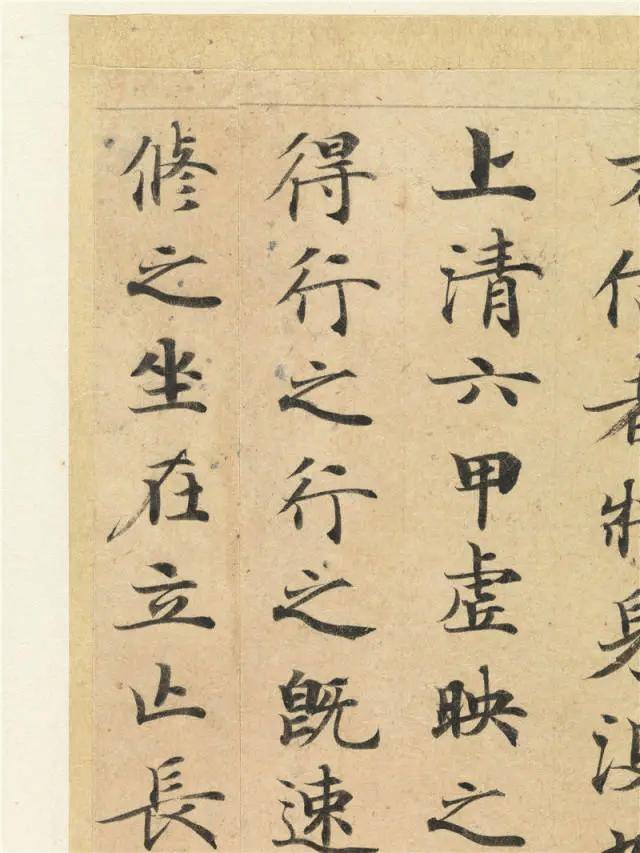 者身
上清六甲虛映之
得行之行之既速
修之坐在立亾長